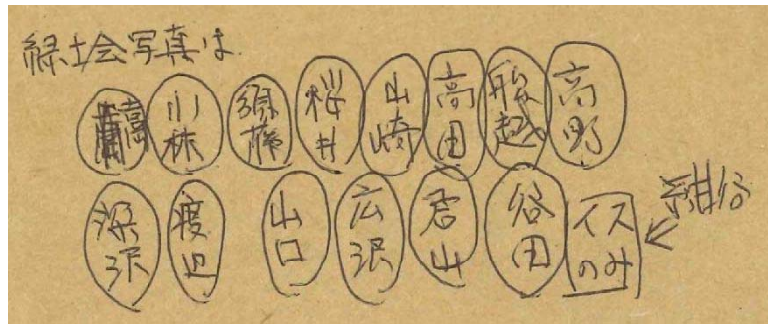 緑土会写真は
小林 須藤 桜井 山崎 高田 船越 高野
深沢 渡辺 山口 広沢 君山 谷田 イスのみ ← 紺谷